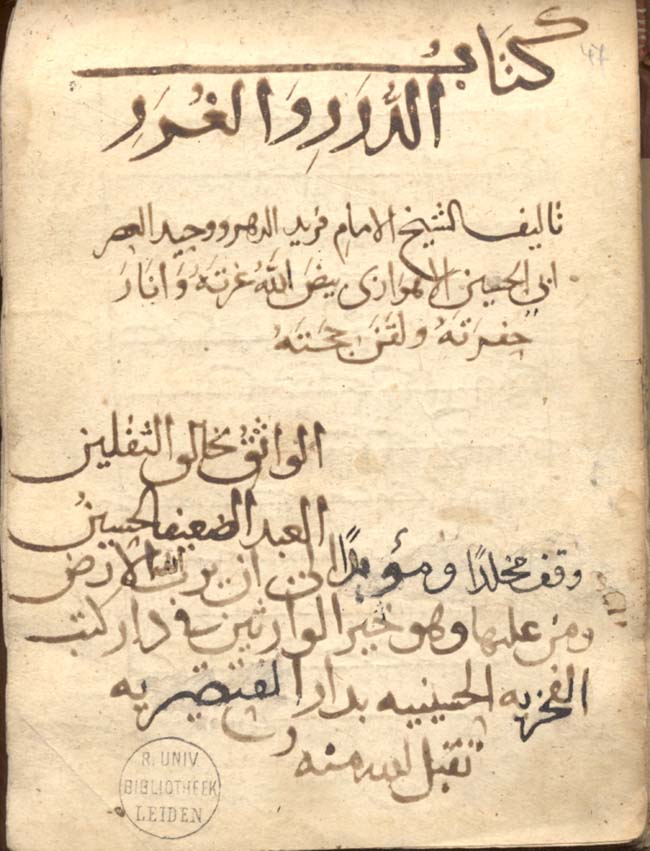 كتاب
الدُّرَرِ وَالغُرَرِ
تاليف الشيخ الامام فريد الدهر ووحيد العصر
ابي الحسين الاهوازي بيضَ اللهُ غرتهُ وَانارَ
حفرتهُ ولقنَ حجتهُ
الواثق بخالق الثقلين
العبد الضعيف الحسين
وقف مخلدًا ومؤبدًا الى ان يرث الله الارض
ومن عليها وهو خير الوارثين في دار كتب
الفخريه الحسينيه بدار
تقبل الله منه
47
R. UNIV.
BIBLIOTHEEK
LEIDEN